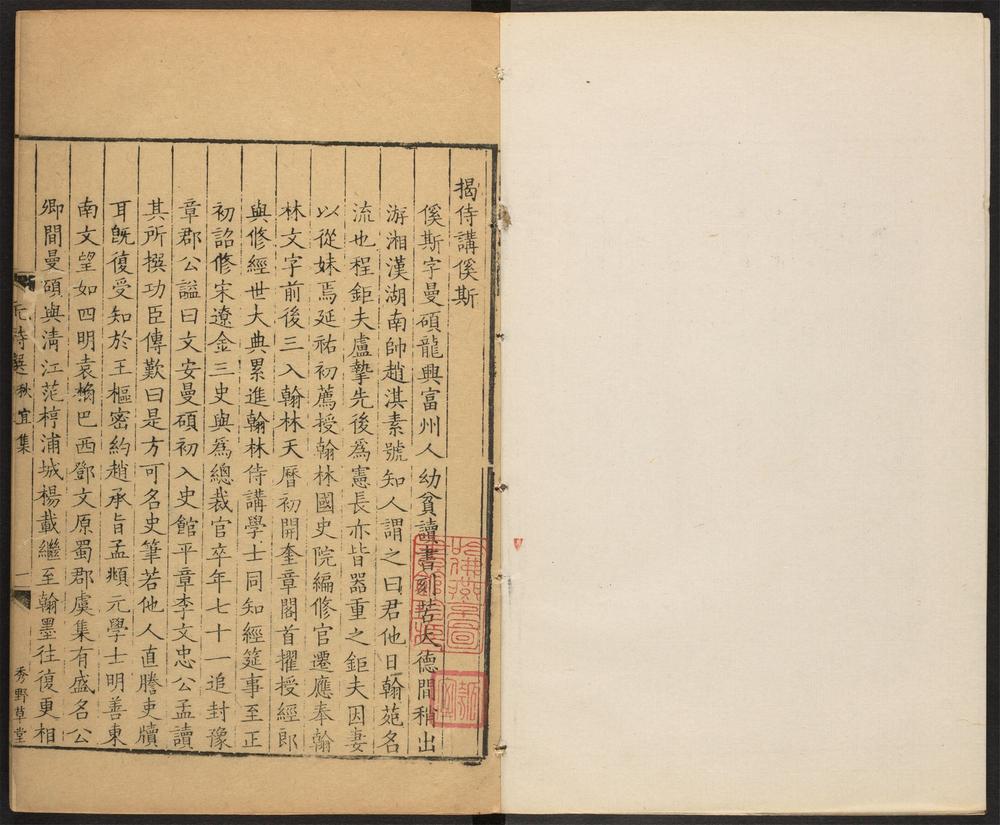 揭侍講傒斯
傒斯字曼碩龍興富州人幼貧讀書刻苦大德間稍出
游湘漢湖南帥趙淇素號知人謂之曰君他日翰苑名
流也程鉅夫盧摯先後爲憲長亦皆器重之鉅夫因妻
以從妹焉延祐初薦授翰林國史院編修官遷應奉翰
林文字前後三入翰林天曆初開奎章閣首擢授經郎
與修經世大典累進翰林侍講學士同知經筵事至正
初詔修宋遼金三史與爲總裁官卒年七十一追封豫
章郡公謚曰文安曼碩初入史館平章李文忠公孟讀
其所撰功臣傳歎曰是方可名史筆若他人直謄吏牘
耳旣復受知於王樞密約趙承旨孟頫元學士明善東
南文望如四明袁桷巴西鄧文原蜀郡虞集有盛名公
卿間曼碩與清江范梈浦城楊載繼至翰墨往復更相
元詩選 秋宜集 一 秀野草堂
哈佛燕京圖